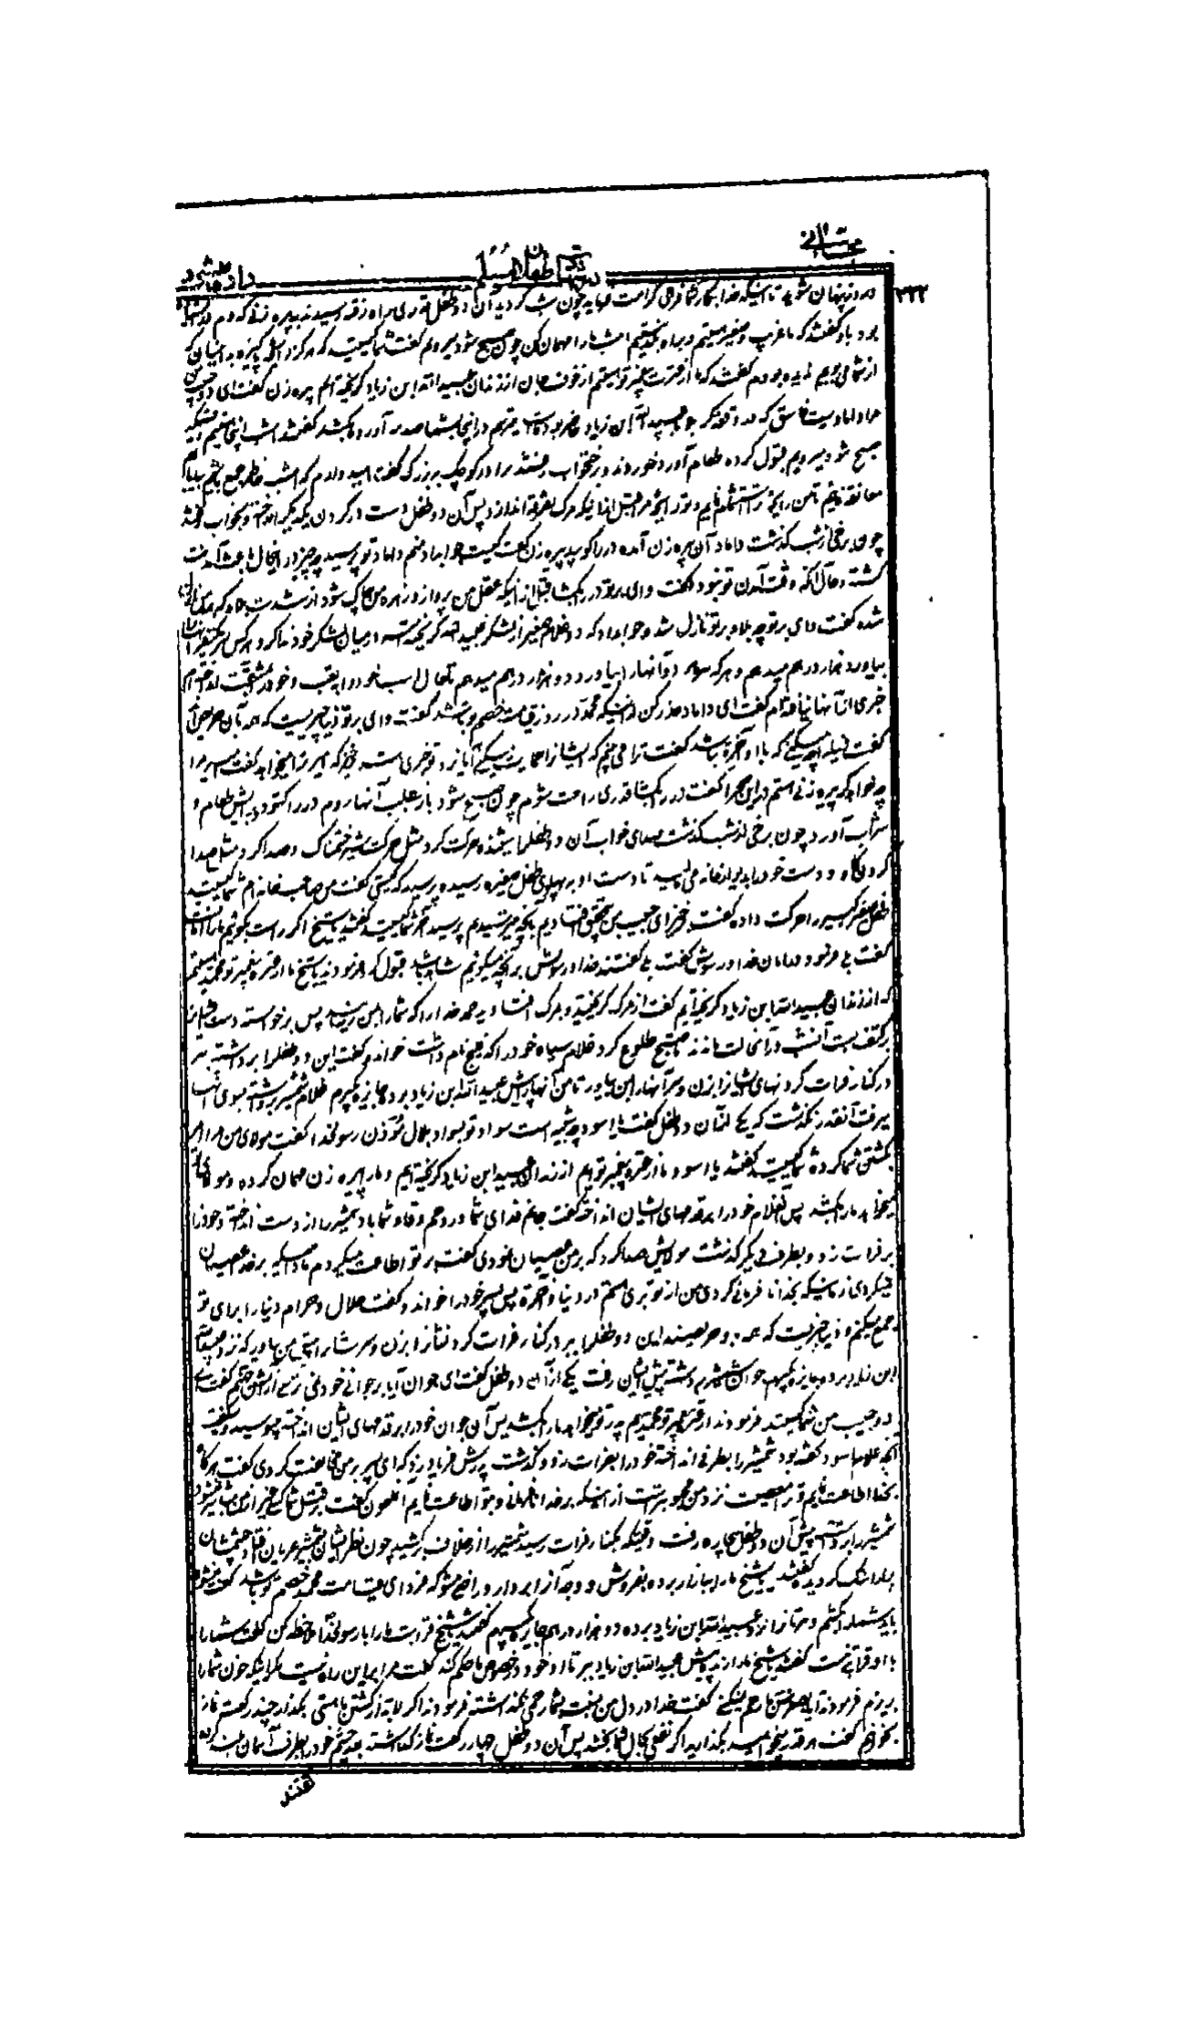 ۲۳۲
در روز پنهان شوید تا اینکه خدا بکار شما کرامت فرماید چون شب گردید آن دو طفل قدری براه رفته رسیدند به پیره زنی که دم در
بود باو گفتند که ما غریب و صغیر هستیم و براه امشب ما را مهمان کن چون صبح شود میرویم گفت شما کیستید که هرگز رایحه پاکیزه به اینسان که
از شما می بویم ندیده بودم گفتند که ما از عترت پیغمبر تو هستیم از خوف جان از زندان عبید الله ابن زیاد گریخته ایم پیره زن گفت ای دو حبیب من
مرا دامادیست فاسق که در وقعه کربلا عبید الله ابن زیاد حاضر بود میترسم در اینجا بشما صدمه آورده بکشد گفتند امشب اینجا
صبح شود میرویم قبول کرده طعام آورد خوردند و برختخواب رفتند برادر کوچک ببزرگ گفت امید دارم که امشب خاطر جمع باشیم بیا با هم
معانقه نمائیم من رایحه ترا استشمام نمایم و تو رایحه مرا قبل از آنیکه مرگ تفرقه اندازد پس آن دو طفل دست در گردن یکدیگر انداخته و بخواب رفتند
چون برخی از شب گذشت داماد آن پیره زن آمده در را کوبید پیره زن گفت کیست جواب داد منم داماد تو پرسید چه چیز در این حال باعث آمدنت
گشته و حال آنکه وقت آمدن تو نبود گفت وای بر تو در بگشا قبل از اینکه عقل من پرواز و زهره من چاک شود از شدت بلا که بمن نازل
شده گفت وای بر تو چه بلا بر تو نازل شد جواب داد که دو غلام صغیر از لشکر عبید الله گریخته امیر میان لشکر خود ندا کرد هر کس سر یکنفر از آنها
بیاورد هزار درهم میدهم و هر که سر هر دو آنها را بیاورد دو هزار درهم میدهم تا بحال اسب خود را بتعب و خود را بمشقت انداخته ام
خبری از آنها نیافته ام گفت ای داماد حذر کن از اینکه محمد در روز قیامت خصم تو باشد گفت وای بر تو دنیا چیزیست که همه بآن حریص اند
گفت دنیا را چه میکنی که با او آخرت نباشد گفت ترا می بینم که ایشان را حمایت میکنی آیا نزد تو خبری هست برخیز که امیر ترا میخواهد گفت امیر مرا
چه خواهد کرد پیره زنی هستم در این صحرا گفت در را بگشا قدری راحت شوم چون صبح شود باز بطلب آنها روم در را گشود و برایش طعام و
شراب آورد چون برخی از شب گذشت صدای خواب آن دو طفل را شنیده حرکت کرد مثل حرکت شتر خشمناک و صدا کرد مثل صدا
کردن گاو و دست خود را بدیوار خانه می مالید تا دست او به پهلوی طفل صغیره رسیده پرسید که کیستی گفت من صاحب خانه ام شما کیستید
طفل صغیر کبیر را حرکت داده گفت برخیز ای حبیب من بتحقیق افتادیم بآنچه میترسیدیم پرسید آخر شما کیستید گفتند یا شیخ اگر راست بگوئیم ما را امانست
گفت بلی فرمود در امان خدا و رسولش گفت بلی گفتند خدا و رسولش بر آنچه میگوئیم شاهد باشد قبول کرد فرمودند یا شیخ ما از عترت پیغمبر تو محمد هستیم
که از زندان عبید الله ابن زیاد گریخته ایم گفت از مرگ گریخته و بمرگ افتاده اید حمد خدا را که شما را بمن رسانید پس برخواسته دست طفلان را
بر کتف بست آنشب در آن حالت ماندند تا صبح طلوع کرد غلام سیاه خود را که فلیح نام داشت خواند و گفت این دو طفل را برداشته ببر
در کنار فرات گردنهای ایشان را بزن و سر آنها را بمن بیاور تا من آنها را پیش عبید الله ابن زیاد برده جایزه بگیرم غلام شمشیر برداشته بسوی آنها
میرفت آنقدر نگذشت که یکی از آن دو طفل گفت یا اسود چه شبیه است سواد تو بسواد بلال مؤذن رسولخدا گفت مولای من مرا امر
بکشتن شما کرده شما کیستید گفتند یا اسود ما از عترت پیغمبر تو ایم از زندان عبید ابن زیاد گریخته ایم و ما را پیره زن مهمان کرده و مولای
میخواهد ما را بکشد پس غلام خود را بر قدمهای ایشان انداخت گفت جانم فدای شما و روحم وقاء شما باد شمشیر را از دست انداخته و خود را
بر فرات زد و بطرف دیگر گذشت مولایش صدا کرد که بر من عصیان نمودی گفت بر تو اطاعت میکردم مادامیکه بر خدا عصیان
نمیکردی زمانیکه بخدا نافرمانی کردی من از تو بری هستم در دنیا و آخرة پس پسر خود را خواند و گفت حلال و حرام دنیا را برای تو
جمع میکنم و دنیا چیزیست که همه بر او حریصند این دو طفل را ببر در کنار فرات گردنشان را بزن و سر ایشان را بمن بیاور که نزد عبید الله
ابن زیاد برده جایزه بگیرم جوان شمشیر برداشته پیش ایشان رفت یکی از آن دو طفل گفت ای جوان آیا بر جوانی خود نمی ترسی از آتش جهنم گفت ای
دو حبیب من شما کیستید فرمودند از عترت پیغمبر تو محمدیم پدر تو میخواهد ما را بکشد پس آن جوان خود را بر قدمهای ایشان انداخته میبوسید و گفت
آنچه غلام اسود گفته بود شمشیر را بطرفی انداخته خود را بفرات زد و گذشت پدرش فریاد زد که ای پسر بر من مخالفت کردی گفت هر گاه
بخدا اطاعت نمایم و ترا معصیت نزد من محبوبتر است از اینکه بر خدا نافرمانی و بتو اطاعت نمایم آن ملعون گفت بر قتل شما کسی غیر از من مباشر نمیشود
شمشیر را برداشته پیش آن دو طفل بیچاره رفت وقتیکه بکنار فرات رسید شمشیر را از غلاف بر کشید چون نظر ایشان بشمشیر عریان افتاد چشمشان
پر از اشک گردیده گفتند یا شیخ ما را ببازار برده بفروش و وجه آنرا بردار و راضی مشو که فردای قیامت محمد خصم تو باشد گفت نمیشود
باید شما را بکشم و سرتانرا نزد عبید الله ابن زیاد برده دو هزار درهم جایزه بگیرم گفتند یا شیخ قرابت ما را با رسولخدا ملاحظه کن گفت شما را
با او قرابتی نیست گفتند یا شیخ ما را زنده پیش عبید الله ابن زیاد ببر تا او خود در خصوص ما حکم کند گفت مرا بر این راه نیست مگر اینکه خون شما را
بریزم فرمودند آیا بصغر سن ما رحم نمیکنی گفت خدا در دل من نسبت بشما رحمی نگذاشته فرمودند اگر لابد از کشتن ما هستی بگذار چند رکعت نماز
بگذاریم گفت هر قدر میخواهید بگذارید اگر نفعی بحال شما بخشد پس آن دو طفل چهار رکعت نماز گذاشته بعد چشم خود را بطرف آسمان بلند کرده
گفتند